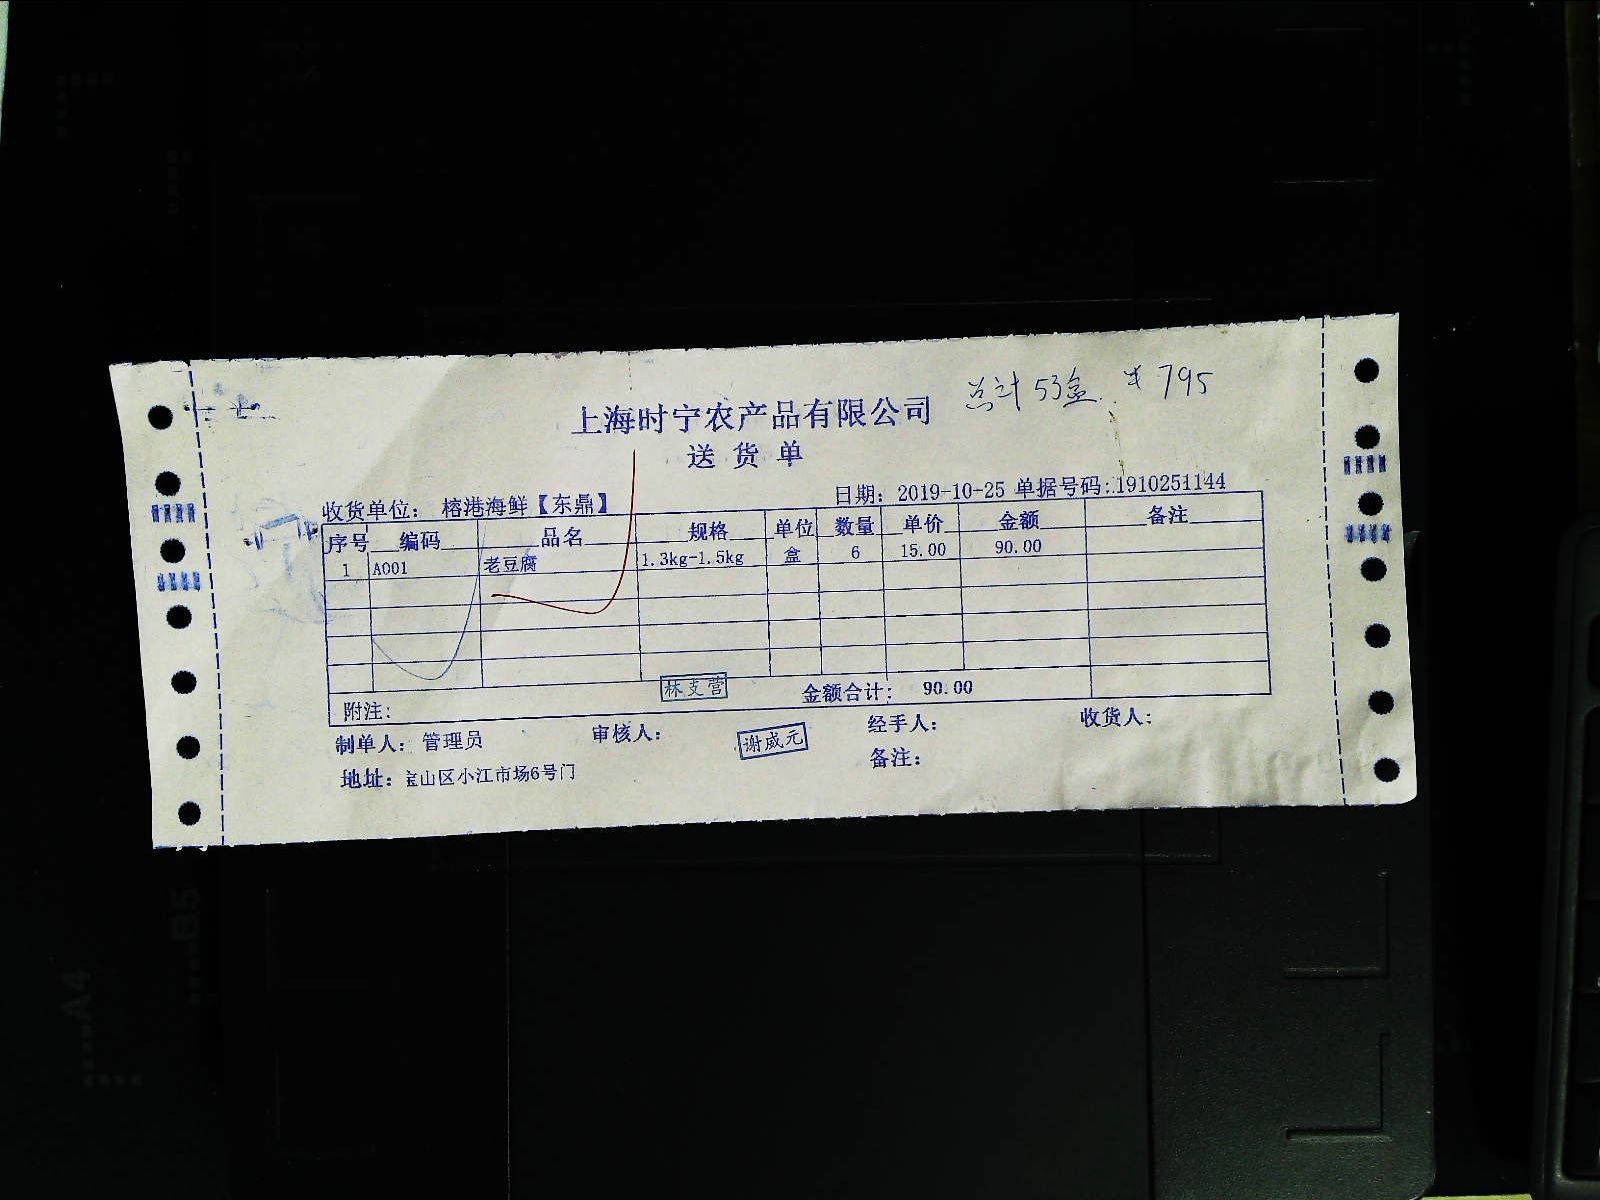 总计53盒 ¥795
上海时宁农产品有限公司
送货单
收货单位: 榕港海鲜【东鼎】 日期: 2019-10-25 单据号码: 1910251144
序号 编码 品名 规格 单位 数量 单价 金额 备注
1 A001 老豆腐 1.3kg-1.5kg 盒 6 15.00 90.00
附注: 林支营 金额合计: 90.00
制单人: 管理员 审核人: 谢威元 经手人: 收货人:
地址: 宝山区小江市场6号门 备注:
B5
A4